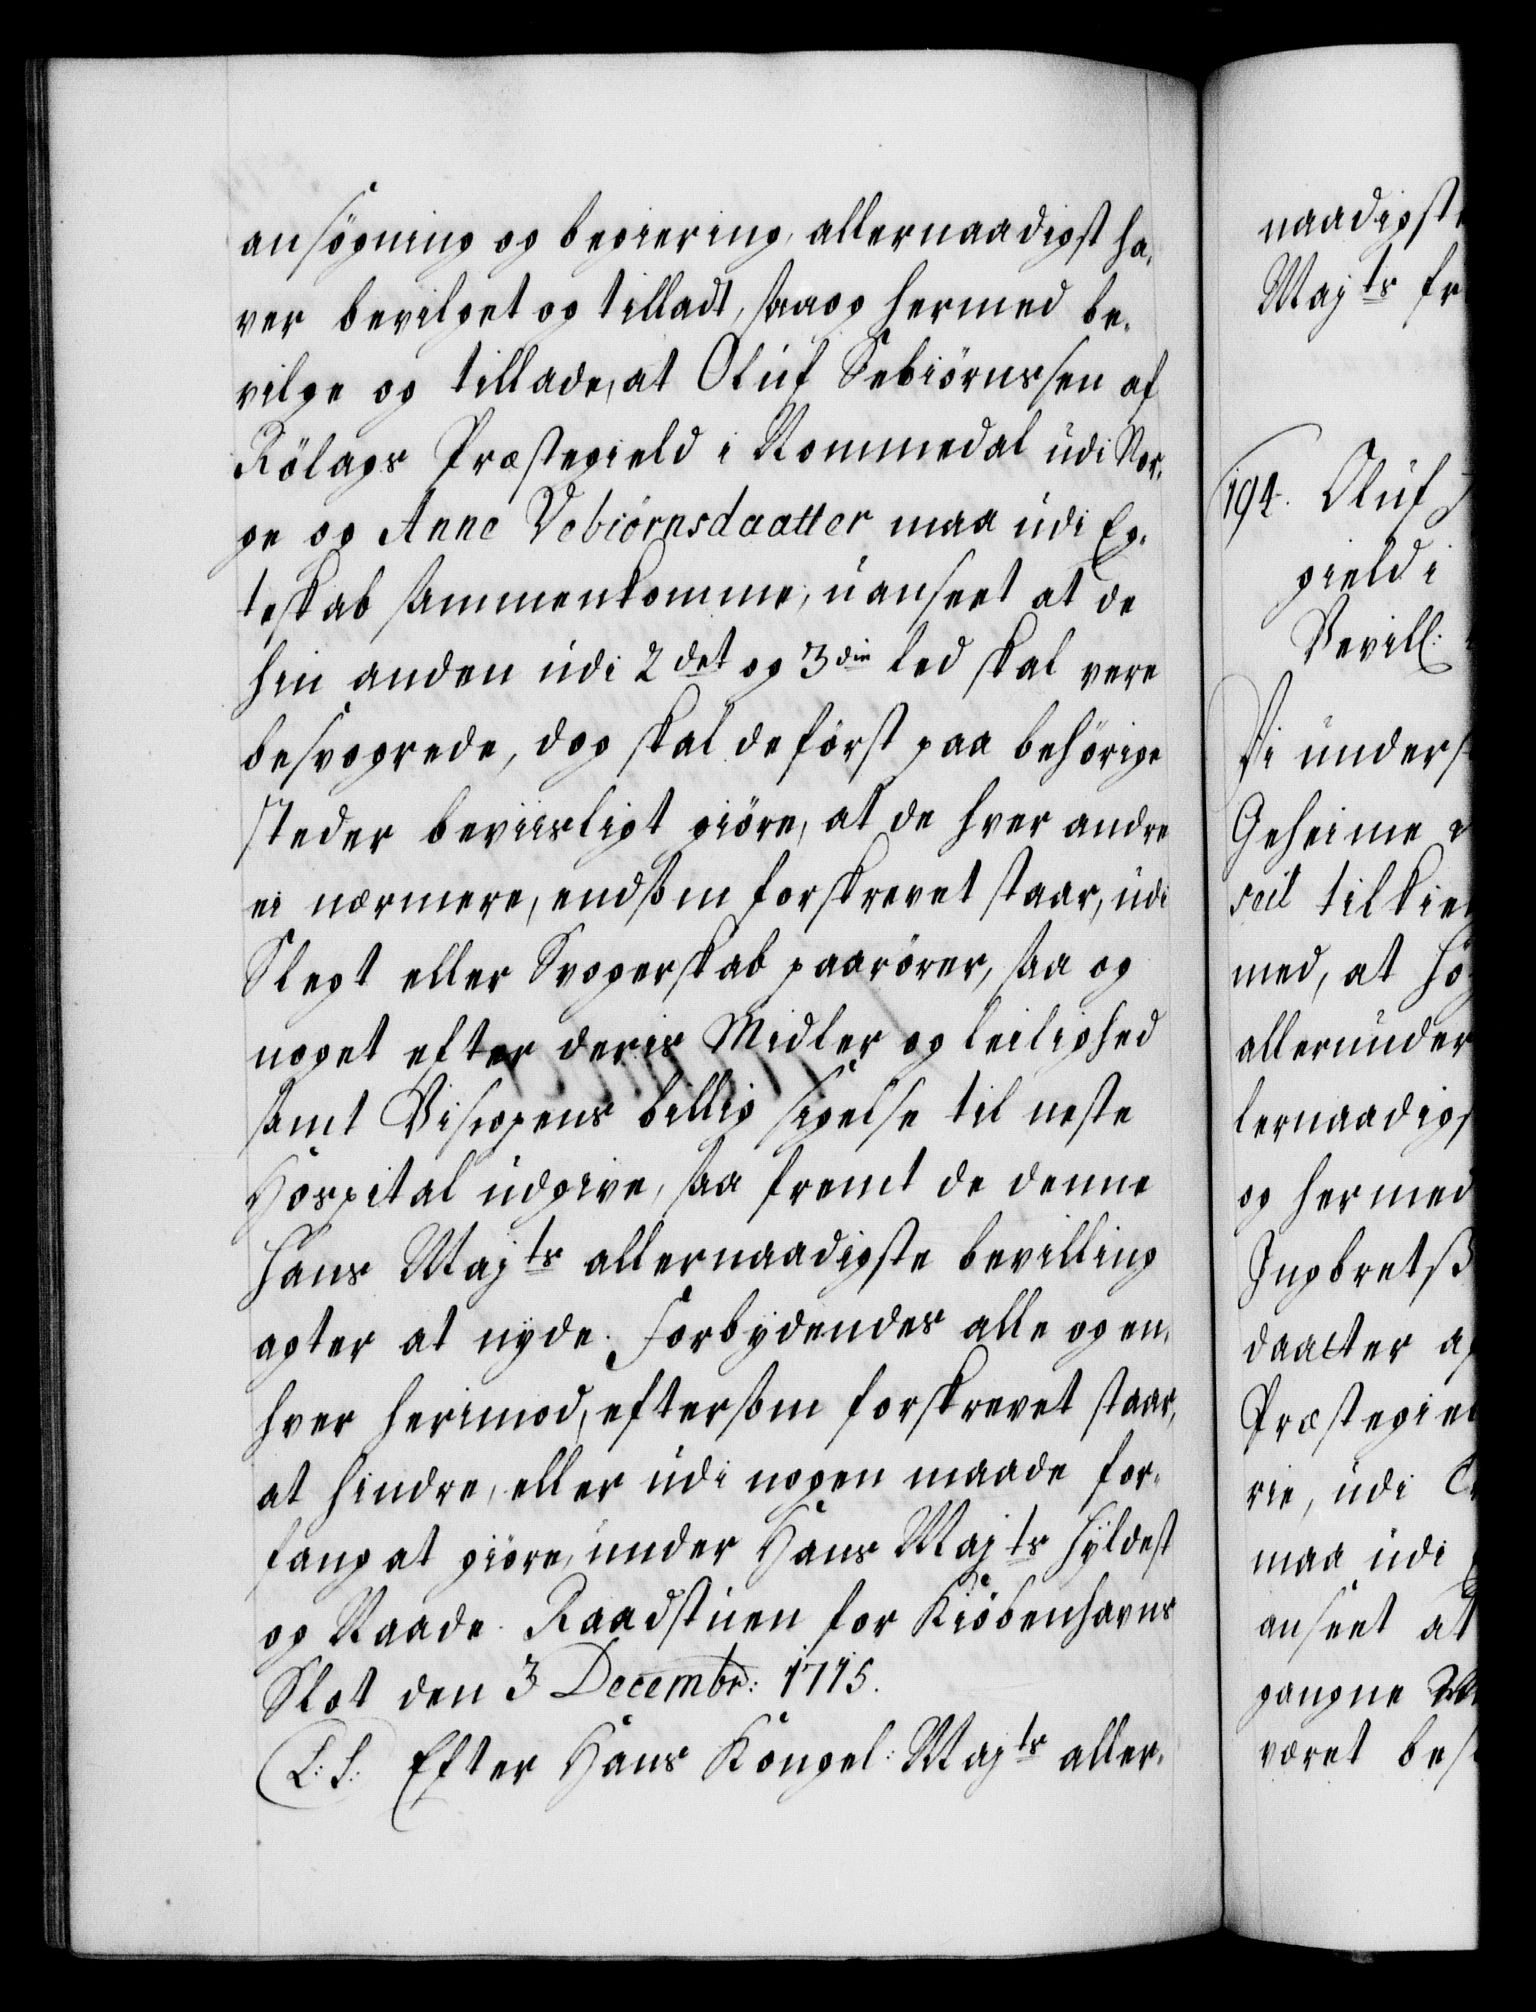 ansögning og begiering, allernaadigst ha,
ver bevilget og tilladt, saa og hermed be,
vilge og tillade, at Oluf Sebiörnssen af
Rölags Præstegield i Rommedal udi Nor,
ge og Anne Vebiörnsdaatter maa udi Eg,
teskab sammenkomme, uanseet at de
hin anden udi 2det og 3die led skal vere
besvogrede, dog skal de först paa behörige
steder beviisligt giöre, at de hver andre
ei nærmere, end som forskrevet staar, udi
Slegt eller Svogerskab paarörer, saa og
noget efter deris Midler og leilighed
samt Biscopens billig sigelse til neste
Hospital udgive, saa fremt de denne
Hans Majts allernaadigste bevilling
agter at nyde. Forbydendes alle og en,
hver herimod, eftersom forskrevet staar,
at hindre, eller udi nogen maade for,
fang at giöre, under Hans Majts hyldest
og Naade. Raadstuen for Kiöbenhavns
Slot den 3 Decembr: 1715.
L: S: Efter Hans Kongel: Majts aller,
naadigst
Majts fr
194. Oluf
gield i
Bevill:
Vi unders
Geheime
seil tilkie
med, at hö
allerunder
lernaadigs
og hermed
Ingbretss
daatter af
Præstegie
rie, udi
maa udi
anseet at
gangne
været bes